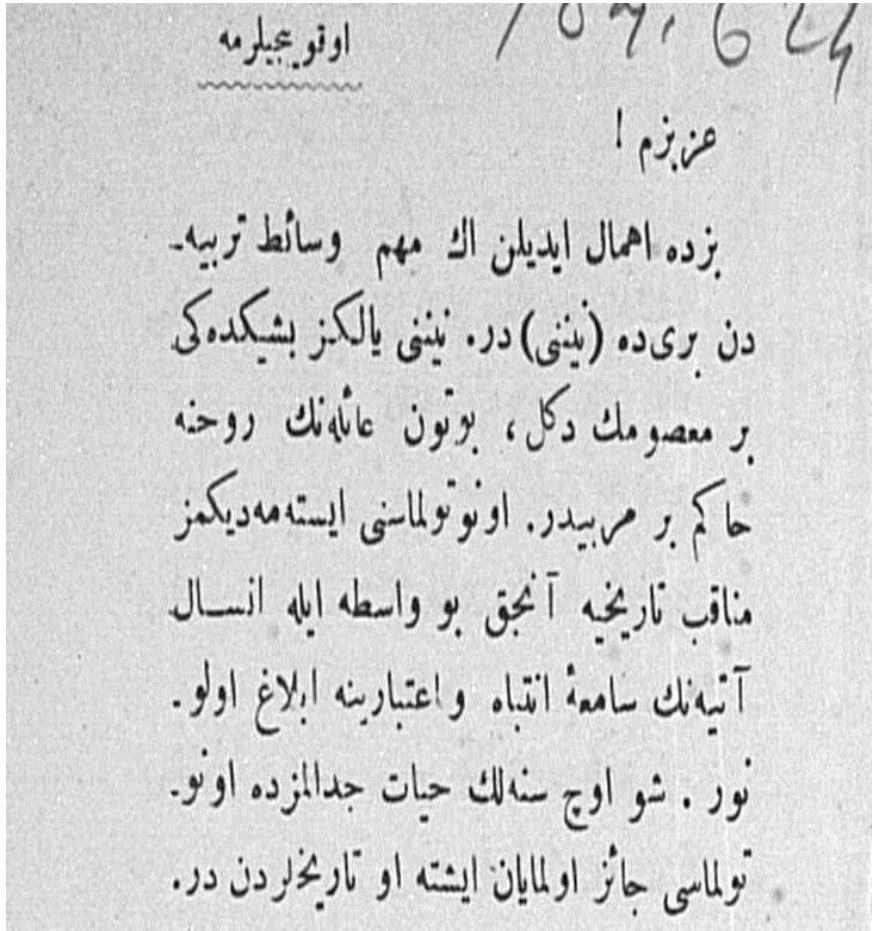 اوقویجیلرمه
عزیزم !
بزده اهمال ایدیلن اك مهم وسائط تربیه‌ـ
دن بری‌ده (نیننی) در. نیننی یالكز بشیكده‌كی
بر معصومك دكل، بوتون عائله‌نك روحنه
حاكم بر مربیدر. اونوتولماسنی ایسته‌مه‌دیكمز
مناقب تاریخیه آنجق بو واسطه ایله انسال
آتیه‌نك سامعهٔ انتباه و اعتبارینه ابلاغ اولو.
نور . شو اوچ سنه‌لك حیات جدالمزده اونو.
تولماسی جائز اولمایان ایشته او تاریخلردن در.